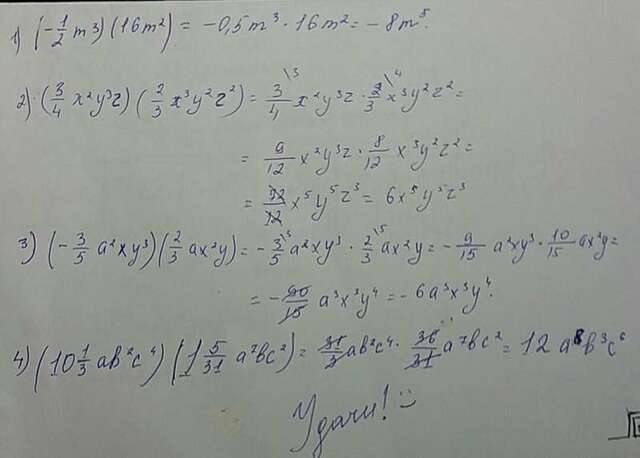 1) (-1/2 m³)(16m²) = -0,5m³ · 16m² = -8m⁵.
2) (3/4 x²y³z)(2/3 x³y²z²) = 3\³/4 x²y³z · 2\⁴/3 x³y²z² =
= 9/12 x²y³z · 8/12 x³y²z² =
= 72/12 x⁵y⁵z³ = 6x⁵y⁵z³
3) (-3/5 a²xy³)(2/3 ax²y) = -3\³/5 a²xy³ · 2\⁵/3 ax²y = -9/15 a²xy³ · 10/15 ax²y =
= -90/15 a³x³y⁴ = -6a³x³y⁴.
4) (10 1/3 ab²c⁴)(1 5/31 a⁷bc²) = 31/3 ab²c⁴ · 36/31 a⁷bc² = 12 a⁸b³c⁶
Удачи!